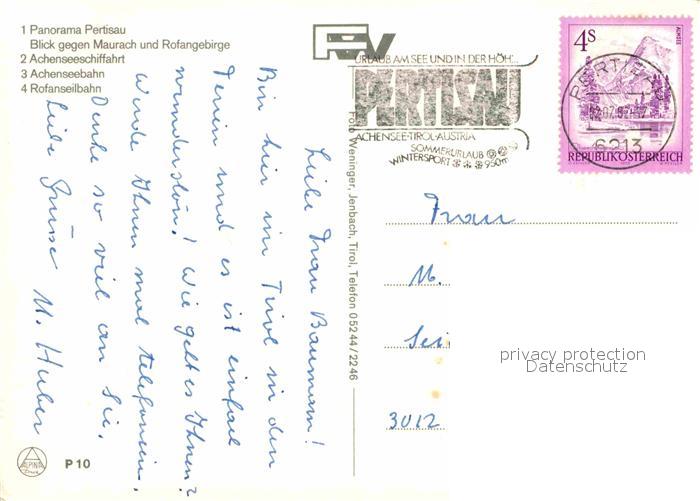 1 Panorama Pertisau
Blick gegen Maurach und Rofangebirge
2 Achenseeschiffahrt
3 Achenseebahn
4 Rofanseilbahn
URLAUB AM SEE UND IN DER HÖH'...
PERTISAU
ACHENSEE-TIROL-AUSTRIA
SOMMERURLAUB
WINTERSPORT 950m
4S
ALMSEE
PERTISAU
6213
REPUBLIK ÖSTERREICH
Liebe Frau Baumann!
Bin hier im Tirol in den
Ferien und es ist einfach
wunderschön! Wie geht es Ihnen?
Werde Ihnen mal telefonieren.
Denke so viel an Sie.
Liebe Grüsse M. Huber
Foto Weninger, Jenbach, Tirol, Telefon 05244/2246
Frau
M.
3012
privacy protection
Datenschutz
ALPINA
P 10